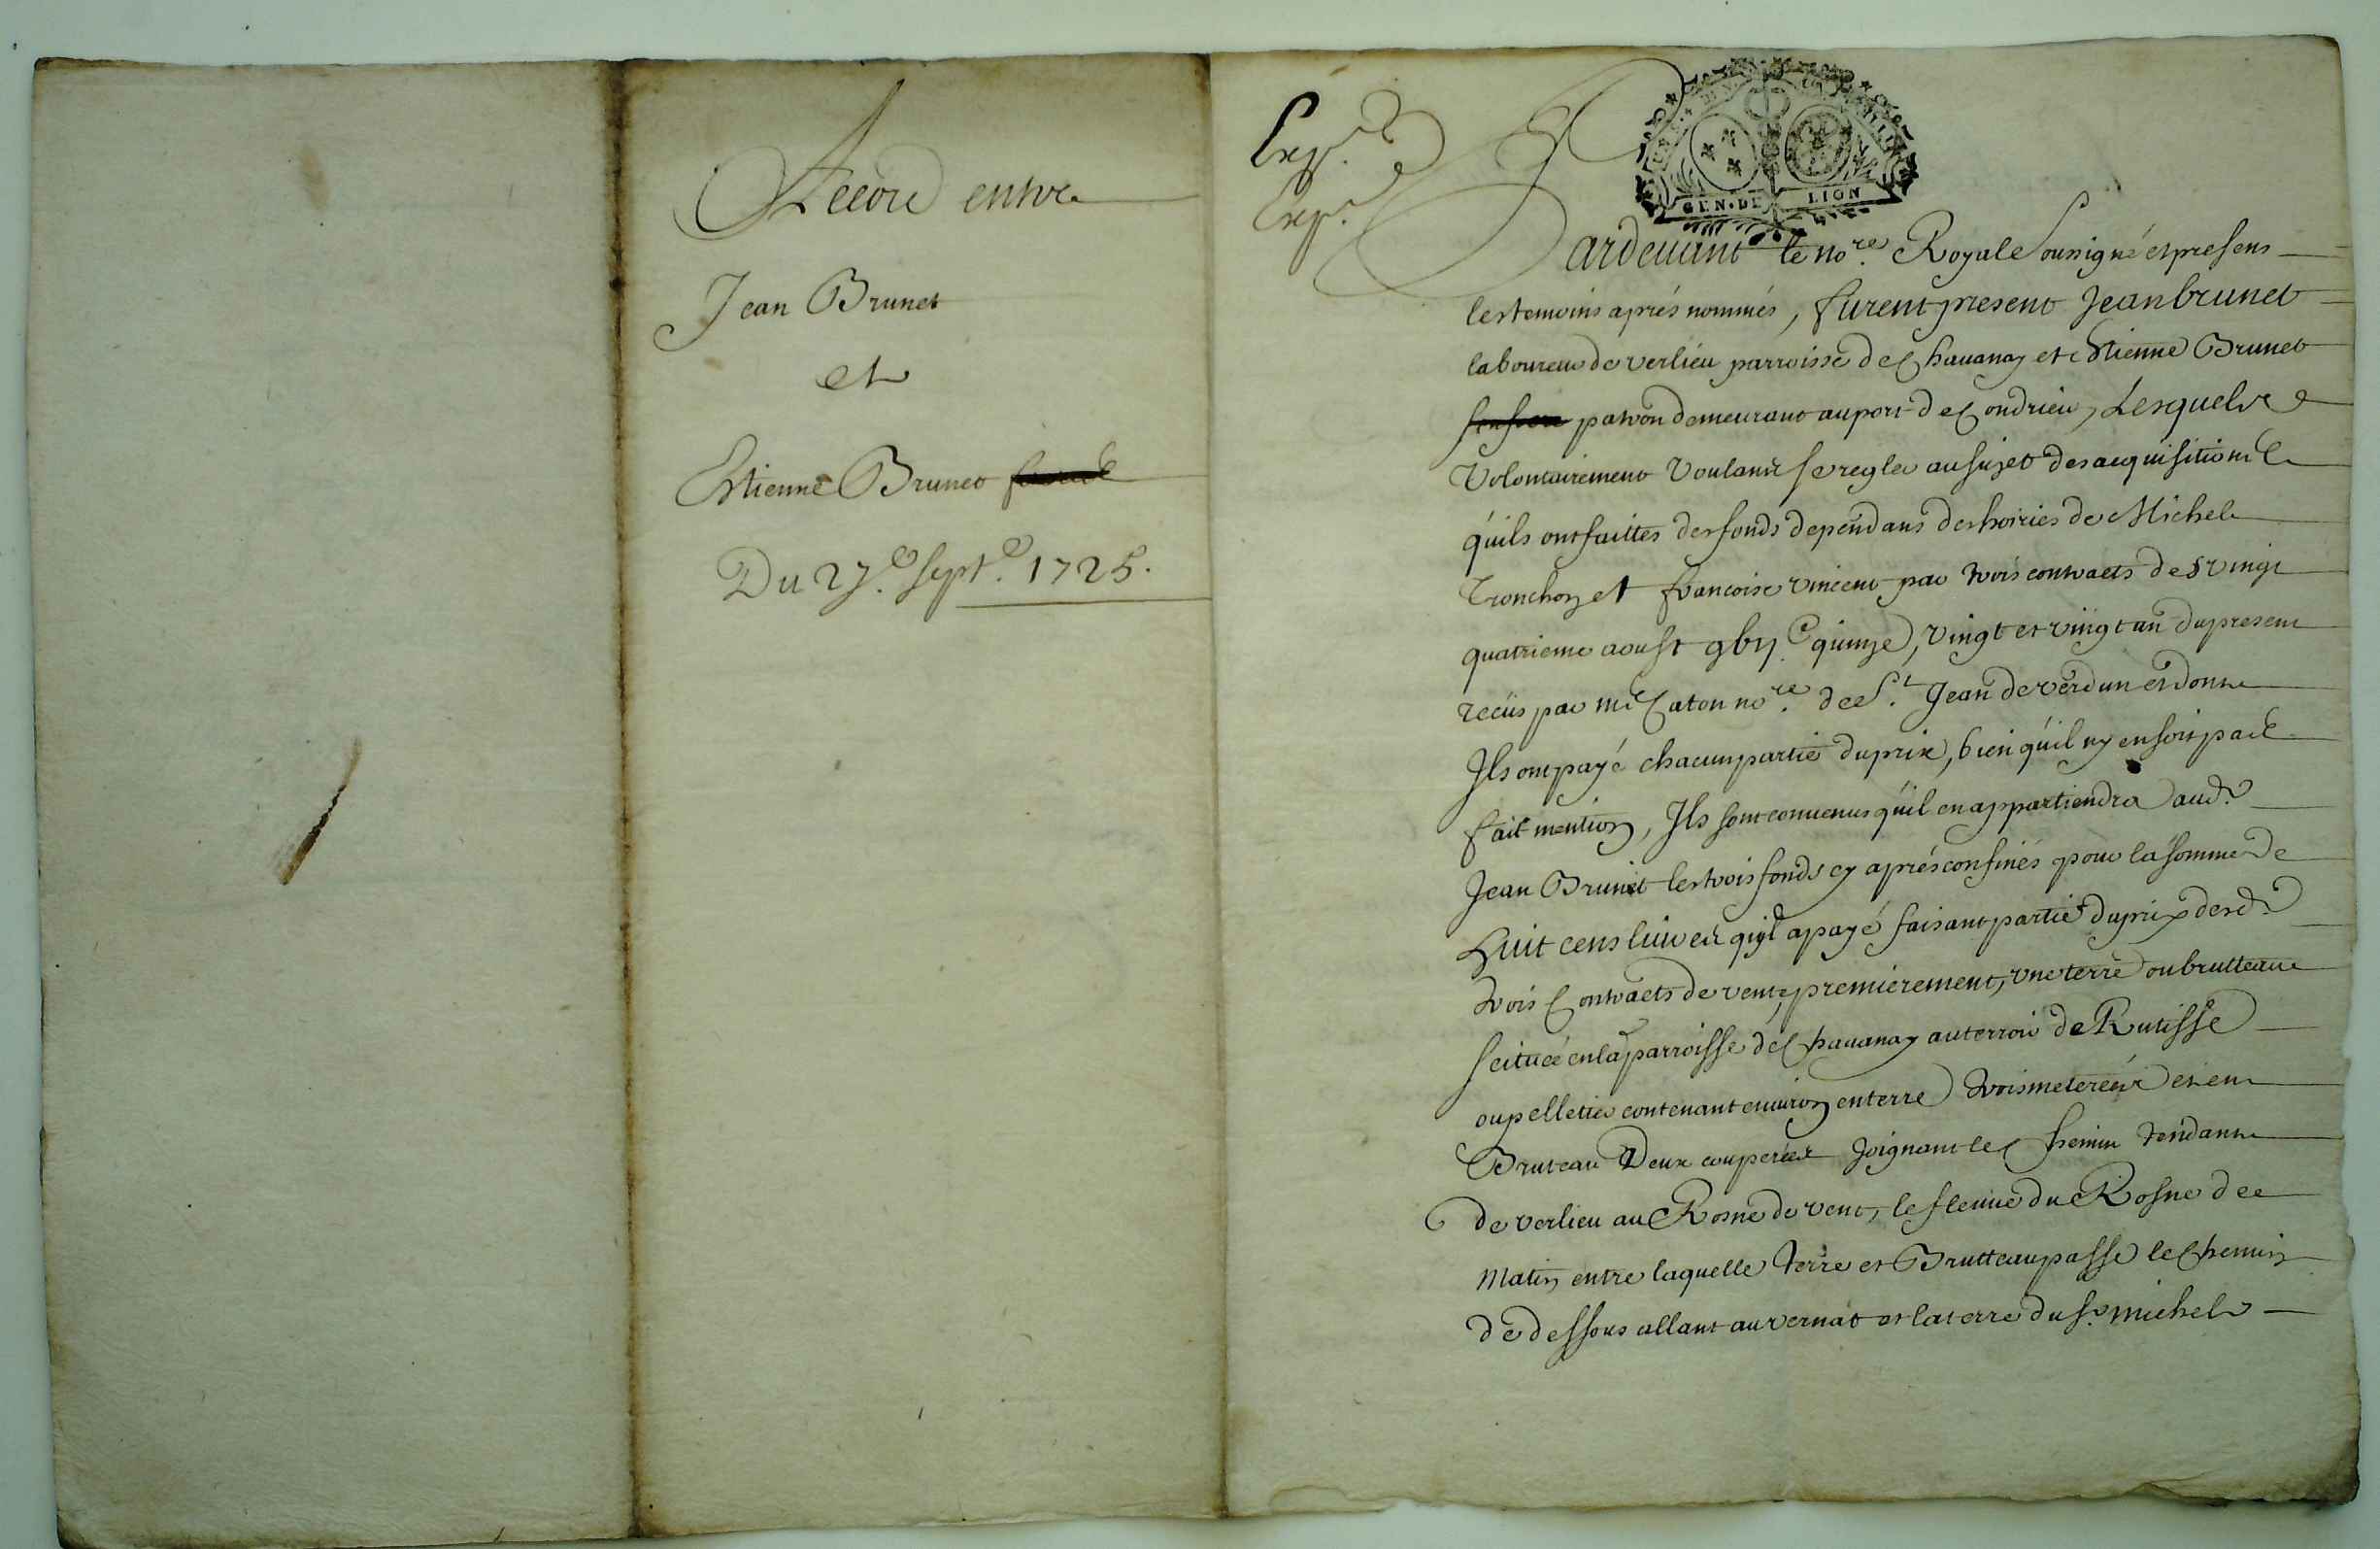 Accord entre
Jean Brunet
et
Estienne Brunet
Du 27.e Sept.e 1725.
Exp.é
Exp.é
GEN. DE LION
Pardevant le no.re Royal Soussigné et presens
les temoins aprés nommés, furent present Jean brunet
laboureur de verlieu parroisse de Chavanay et Estienne Brunet
patron demeurant au port de Condrieu, Lesquels
Volontairement voulants se regler au sujet des acquisitions
qu'ils ont faittes des fonds dependans des hoiries de Michel
Tronchon et francoise vincent par trois contracts des vingt
quatrieme aoust quinze, vingt et vingt un du present
recüs par me Caton no.re de St. Jean de verdun et dont
Ils ont payé chacun partie du prix, bien qu'il ny en soit pas
fait mention, Ils sont convenus qu'il en appartiendra aud.
Jean Brunet les trois fonds cy aprés confinés pour la somme de
huit cens livres qu'il a payé faisant partie du prix desd.
trois Contracts de vente, premierement, une terre ou brutteau
scituée en la parroisse de Chavanay au terroir de Rutisse
ou pelletier contenant environ en terre trois meterées et en
Bruteau Deux couperées Joignant le Chemin tendant
de verlieu au Rosne de vent, le fleuve du Rosne de
Matin, entre laquelle terre et Brutteau passe le Chemin
de dessous allant au vernat et la terre du s.r michel